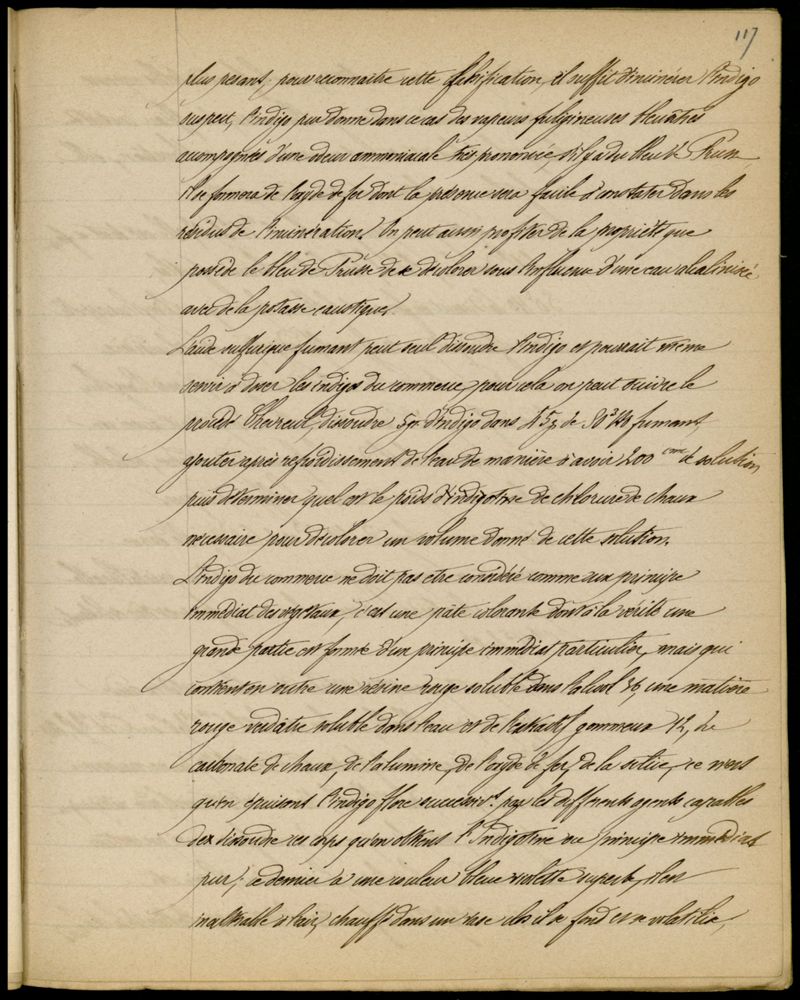 117
plus pesant, pour reconnaitre cette falsification, il suffit d'incinérer l'indigo
suspect, l'indigo pur donne dans ce cas des vapeurs fuligineuses bleuâtres
accompagnées d'une odeur ammoniacale très prononcée, s'il y a du bleu de Prusse
il se formera de l'oxyde de fer dont la présence sera facile à constater dans les
résidus de l'incinération. On peut aussi profiter de la propriété que
possède le bleu de Prusse de se décolorer sous l'influence d'une eau alcalinisée
avec de la potasse caustique.
L'acide sulfurique fumant peut seul dissoudre l'indigo et pourrait même
servir à doser les indigos du commerce, pour cela on peut suivre le
procédé Chevreul, dissoudre 5gr d'indigo dans 45g de SO3HO fumant,
ajouter après refroidissement de l'eau de manière à avoir 200 cmc de solution,
puis déterminer quel est le poids de chlorure de chaux
nécessaire pour décolorer un volume donné de cette solution.
L'indigo du commerce ne doit pas etre considéré comme un principe
immédiat des végétaux, c'est une pâte colorante dont à la vérité une
grande partie est formée d'un principe immédiat particulier, mais qui
contient en outre une résine rouge soluble dans l'alcool, une matière
rouge verdâtre soluble dans l'eau et de l'extractif gommeux 12, du
carbonate de chaux, de l'alumine, de l'oxyde de fer, de la silice, ce n'est
qu'en épuisant l'indigo flore successivt par les différents agents capables
de dissoudre ces corps qu'on obtient l'Indigotine ou principe immédiat
pur; ce dernier a une couleur bleue violette superbe, il est
inaltérable à l'air, chauffé dans un vase clos il se fond et se volatilise,